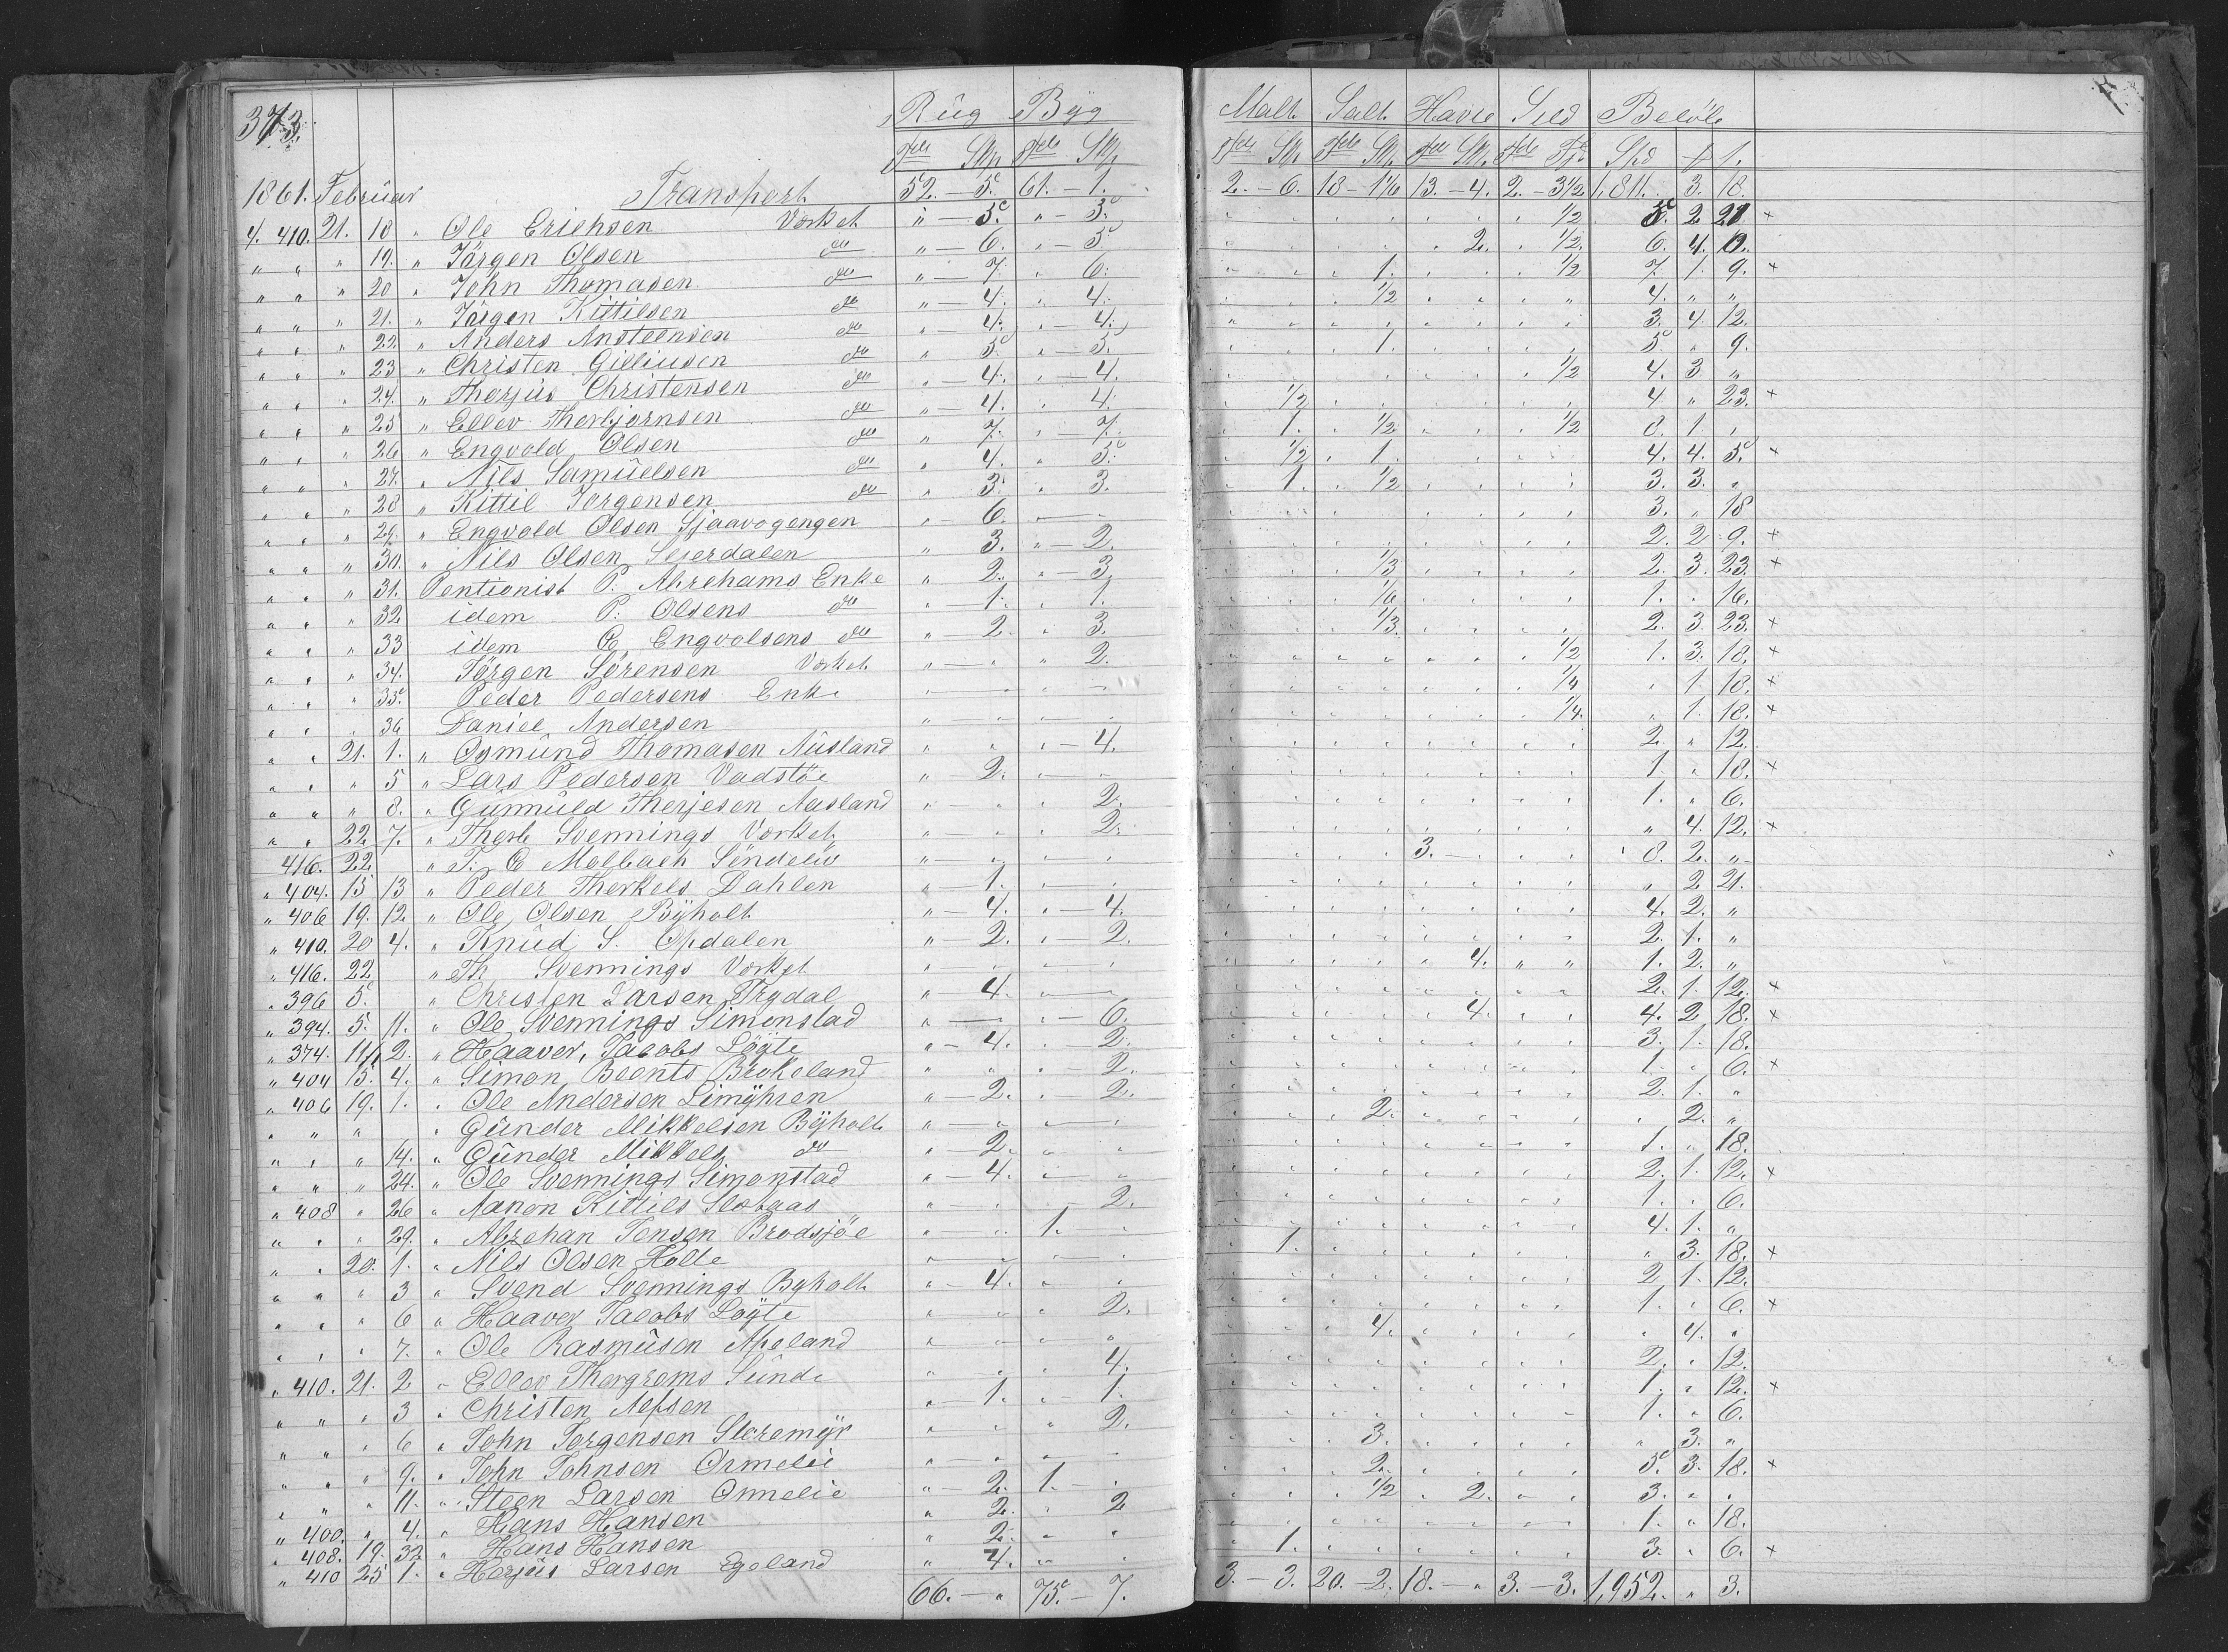 373. Rug Byg Malt Salt Havre Sild Beløb
Tde Skp Tde Skp Tde Sk. Tde Sk. Tde Sk. Tde Fj. Spd ƒ 1.
1861. Februar Transport 52. – 5. 61. – 1. 2. – 6. 18 – 1 1/6 13. – 4. 2. – 3 1/2 1,811. 3. 18.
4. 410. 21. 18 " Ole Erichsen Værket " – 5. " – 5. 1/2 5. 2 21 ×
" " " 19. " Jörgen Olsen do " – 6. " – 5. 2. 1/2. 6. 4. 0.
" " " 20 " John Thomasen do " – 7. " 6. 1. 1/2 7. 1. 9. ×
" " " 21. " Jörgen Kittilsen do " – 4. " 4. 1/2 4. " "
" " " 22 " Anders Ansteensen do " – 4. " – 4. 3. 4. 12.
" " " 23 " Christen Gilliusen do " 5. " – 5. 1. 5. " 9.
" " " 24. " Therjus Christensen do " – 4. " – 4. 1/2 4. 3 "
" " " 25 " Ellev Therbjørnsen do " – 4. " 4. 1/2 4 " 23. ×
" " " 26 " Engvold Olsen do " 7. " 7. 1. 1/2 1/2 8. 1. "
" " " 27. " Nils Samuelsen do " 4. " 5. 1/2 1. 4. 4. 5. ×
" " " 28 " Kittil Jørgensen do " 3. " 3. 1. 1/2 3. 3. "
" " " 29. " Engvold Olsen Sjaavogengen " – 6. 3. " 18
" " " 30. " Nils Olsen Seierdalen " 3. " – 2. 2. 2 9. ×
" " " 31. Pentionist P. Abrehams Enke " 2. " – 3. 1/3 2. 3. 23. ×
" " " 32 idem P. Olsens do " – 1. " 1. 1/6 1. " 16.
" " " 33 idem O. Engvolsens do " – 2. " 3. 1/3. 2. 3. 23. ×
" " " 34. Jörgen Sörensen Værket " – " " 2. 1/2 1. 3. 18. ×
" " " 35. Peder Pedersens Enke 1/4 " 1. 18. ×
" " " 36 Daniel Andersen 1/4. " 1. 18. ×
" " 21. 1. " Osmund Thomasen Ausland " – 4. 2. " 12.
" " " 5 " Lars Pedersen Vadstøe " – 2. 1. " 18. ×
" " " 8. " Gunnuld Therjesen Aasland 2. 1. " 6.
" " 22. 7. " Therb Svennings Værket 2. " 4. 12. ×
416. 22 " T. C Molbach Söndelév 3. – 8. 2. "
" 404. 15 13 " Peder Therkels Dahlen " – 1. " 2 21.
" 406 19. 12. " Ole Olsen Byholt " – 4. " – 4. 4. 2. "
" 410. 20 4. " Knud S. Opdalen " – 2. " 2. 2. 1. "
" 416. 22 " Th Svennings Værket 4. 1. 2. "
" 396 5. " Christen Larsen Trydal " – 4. 2. 1. 12. ×
" 394. 5. 11. " Ole Svennings Simonstad " – 6. 4. 4. 2 18. ×
" 374. 11/1 2. " Haaver Jacobs Løgte " – 4. " 2. 3. 1. 18.
" 404 15. 4. " Simon Beents Brekeland 2. 1. " 6. ×
" 406 19. 1. " Ole Andersen Limyhren " – 2. " 2. 2. 1. "
" " " " Gunder Mikkelsen Byholt 2. " 2. "
" " " 14. " Gunder Mikkels do " 2. 1. " 18.
" " " 24. " Ole Svennings Simonstad " – 4. 2. 1. 12. ×
" 408 " 26 " Aanon Kittils Slotaas 2. 1. " 6.
" " " 29. " Abrehan Jensen Brodsjöe 1. 4. 1. "
" " 20. 1. " Nils Olsen Holte 1. " 3. 18. ×
" " " 3 " Svend Svennings Byholt " – 4. 2. 1. 12.
" " " 6 " Haaver Jacobs Løgte 2. 1. " 6. ×
" " " 7. " Ole Rasmusen Apeland 4. " 4. "
" 410. 21. 2 " Ellev Thorgrems Sunde 4. 2. " 12.
" " " 3 " Christen Nefsen " – 1. " 1. 1. " 12. ×
" " " 6 " John Jørgensen Storemyr 2. 1. " 6.
" " " 9. " John Johnsen Ormelie 3. " 3. "
" " " 11. " Steen Larsen Ormelie " – 2. 1. – 2. 5. 3. 18. ×
" 400. " 4. " Hans Hansen " 2. " 2 1/2 2. 3. " "
" 408. 19. 32 " Hans Hansen " 2. 1. " 18.
" 410 25 1. " Herjus Larsen Egeland " 4. 1. 3. " 6. ×
66. – " 75. – 7. 3. – 3. 20. – 2. 18. – " 3. – 3. 1,952. " 3.